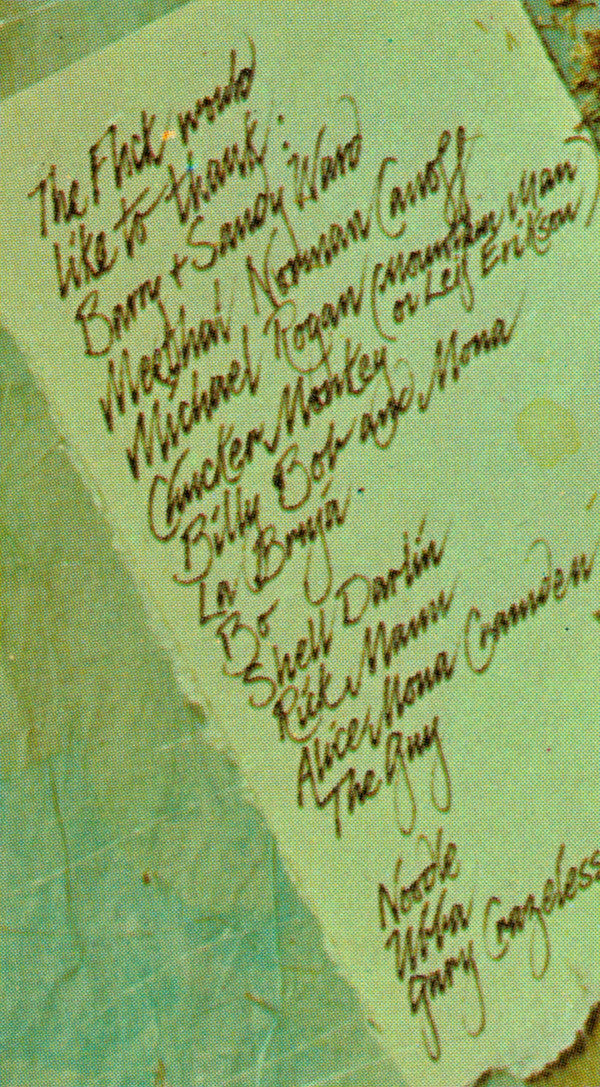 The Flick would
like to thank:
Barry + Sandy Ward
Norman Canoff
Michael Rogan (Mountain Man
or Leif Erikson)
Chicken Monkey
Billy Bob and Mona
La Bruja
Bo
Shell Darlin
Rick Mann
Alice Mona Camden
The Guy
Noodle
Ubba
Gary